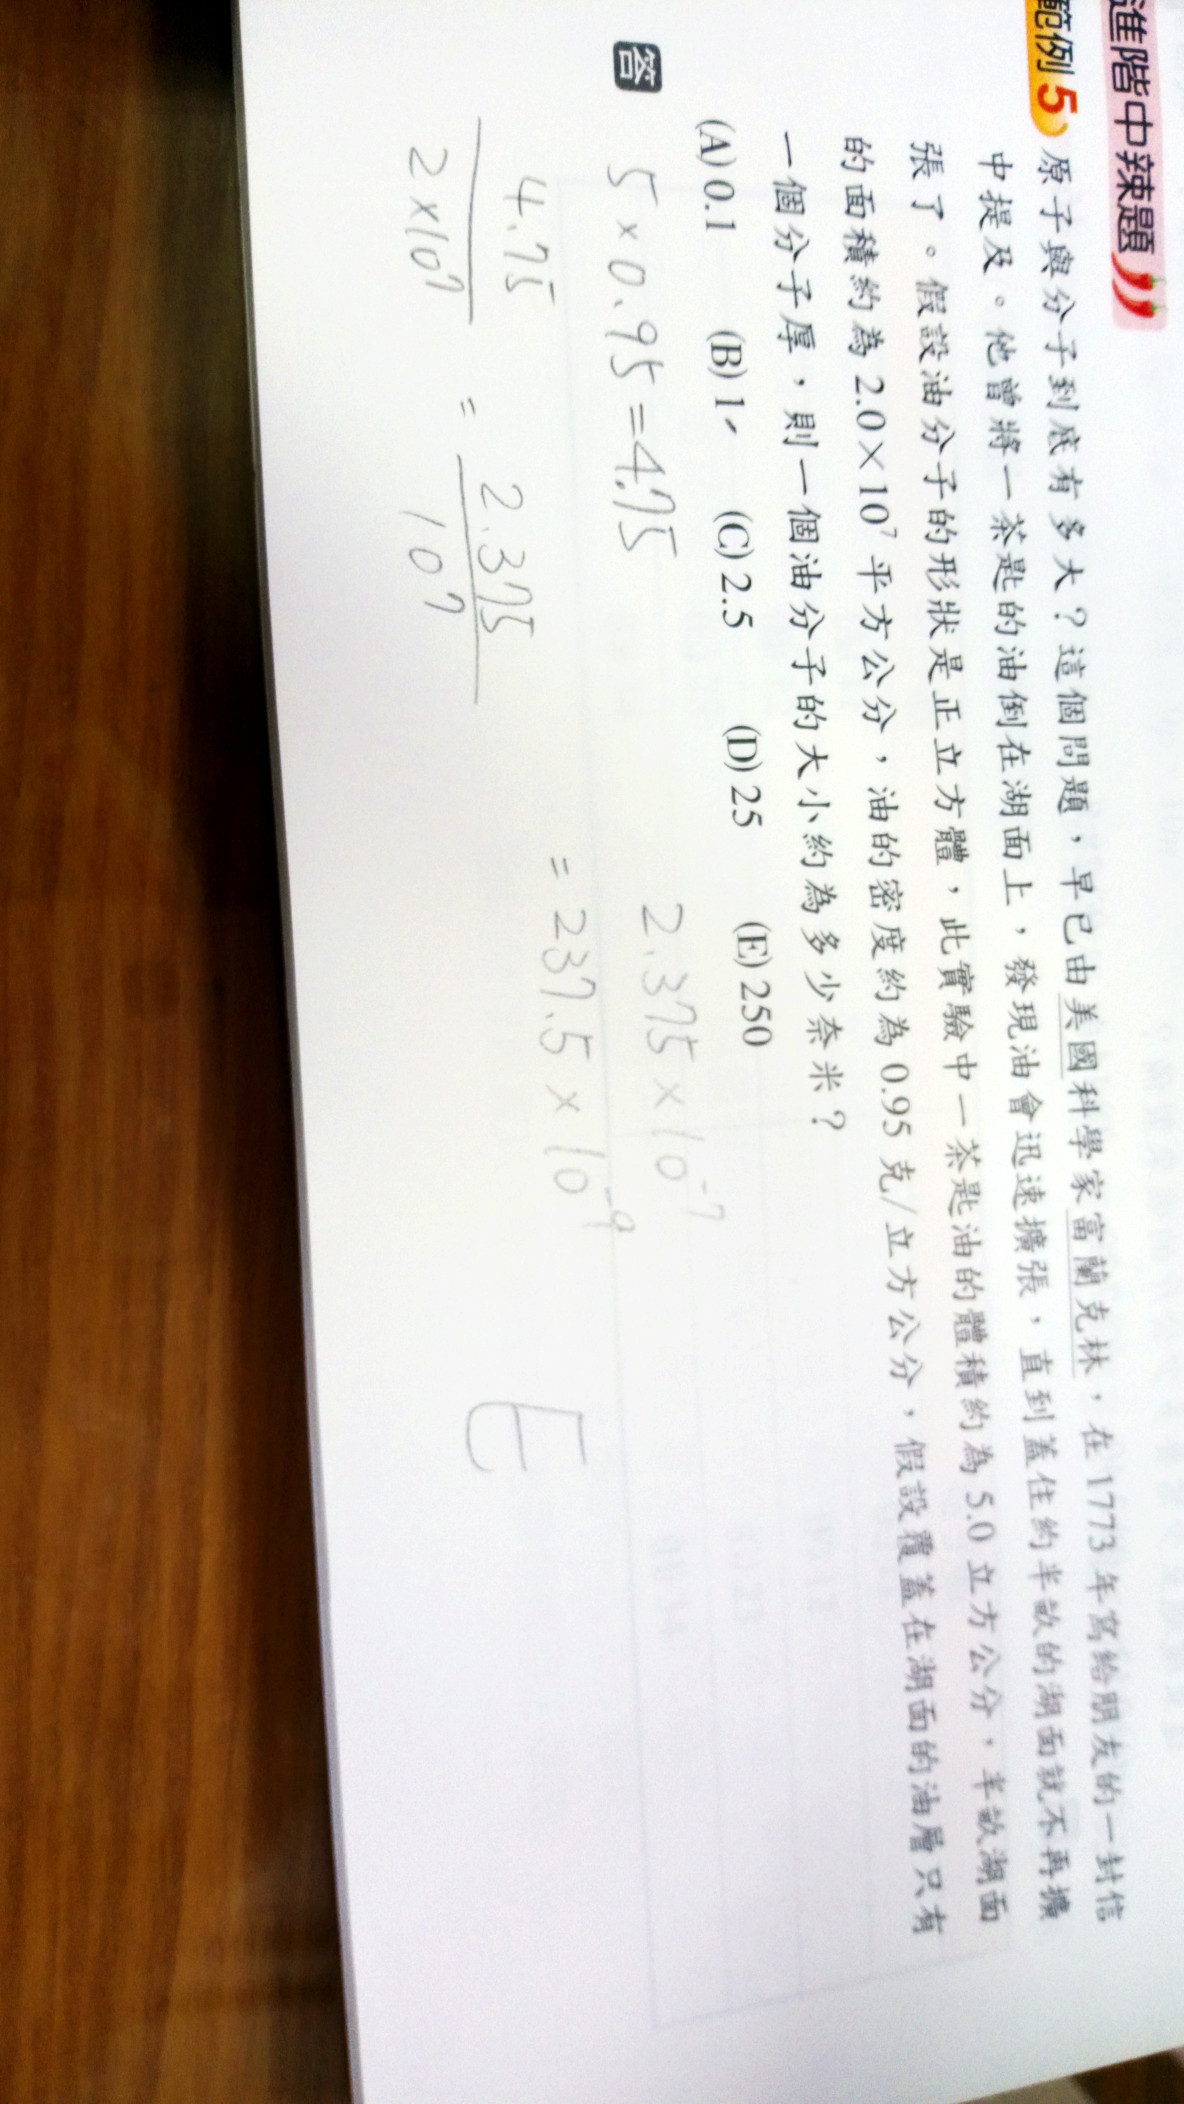 進階中辣題
範例 5 原子與分子到底有多大？這個問題，早已由美國科學家富蘭克林，在 1773 年寫給朋友的一封信
中提及。他曾將一茶匙的油倒在湖面上，發現油會迅速擴張，直到蓋住約半畝的湖面就不再擴
張了。假設油分子的形狀是正立方體，此實驗中一茶匙油的體積約為 5.0 立方公分，半畝湖面
的面積約為 2.0×10⁷ 平方公分，油的密度約為 0.95 克/立方公分，假設覆蓋在湖面的油層只有
一個分子厚，則一個油分子的大小約為多少奈米？
(A) 0.1 (B) 1 (C) 2.5 (D) 25 (E) 250
答 5×0.95=4.75
2.375×10⁻⁷
4.75/2×10⁷ = 2.375/10⁷ = 237.5×10⁻⁹
E